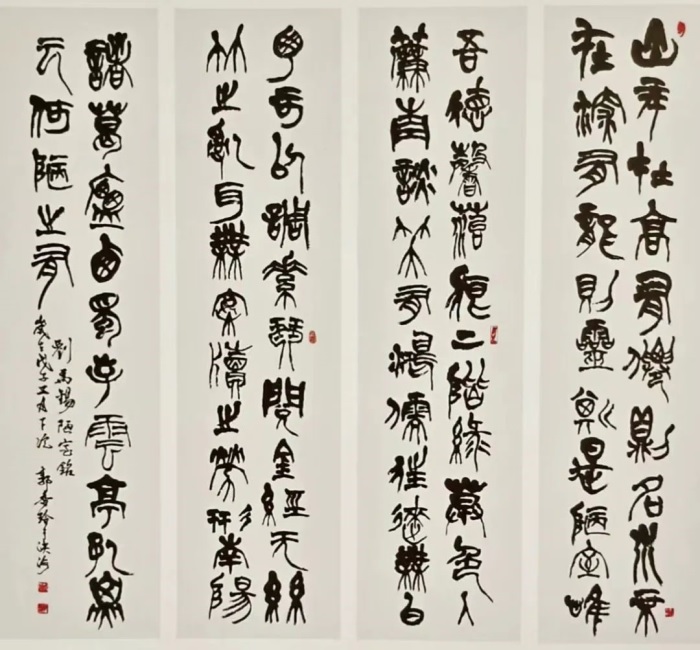 山不在高有僊則名水不
在深有龍則靈斯是陋室唯
吾德馨苔痕上階綠草色入
簾青談笑有鴻儒往來無白
丁可以調素琴閱金經无絲
竹之亂耳無案牘之勞形南陽
諸葛廬西蜀子雲亭孔子
云何陋之有
劉禹錫陋室銘
歲在戊子